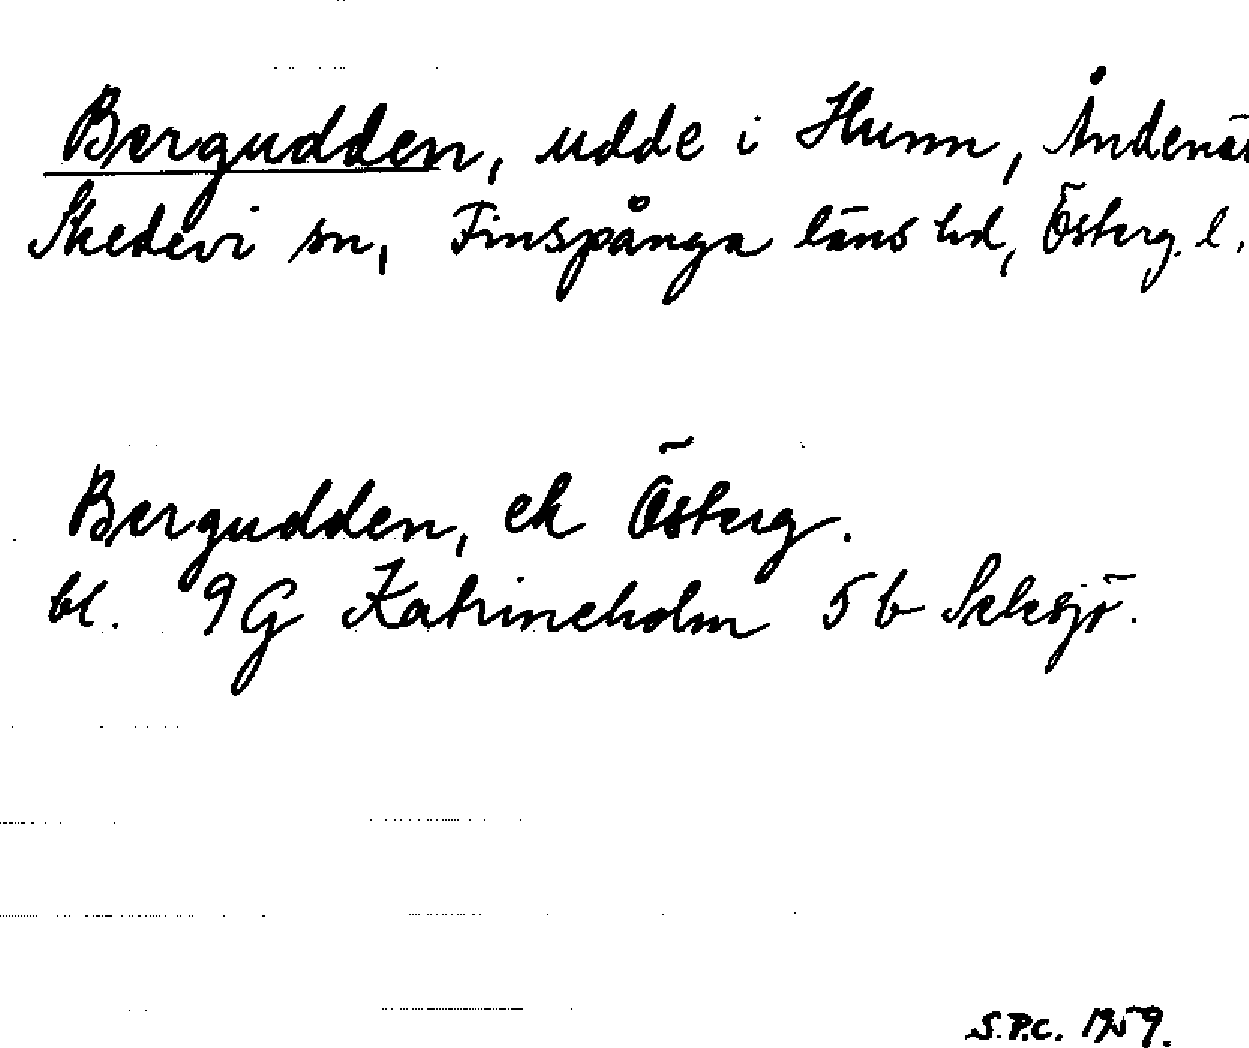 Bergudden, udde i Hunn, Åndenä
Skedevi sn, Finspånga läns hd, Österg. l.
Bergudden, ek Österg.
bl. 9G Katrineholm 5b
S.P.C. 1959.